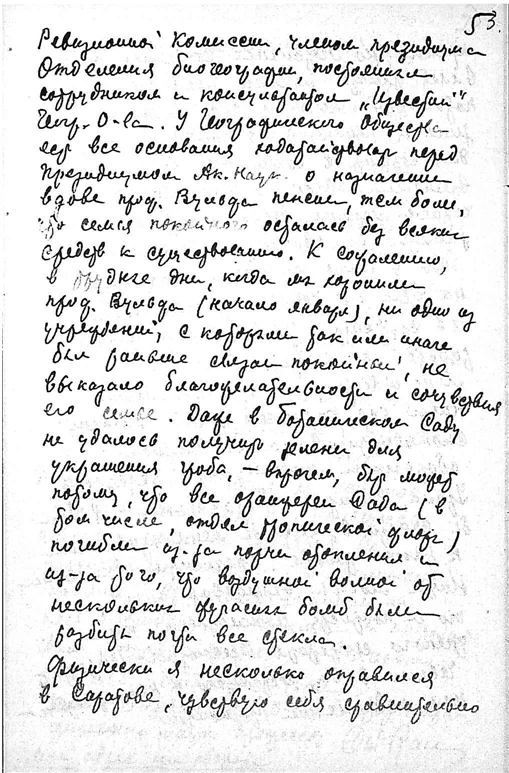 53.
Ревизионной Комиссии, членом президиума
Отделения биогеографии, постоянным
сотрудником и консультантом „Известий"
Геогр. О-ва. У Географического Общества
есть все основания ходатайствовать перед
Президиумом Ак. Наук о назначении
вдове проф. Вульфа пенсии, тем более,
что семья покойного осталась без всяких
средств к существованию. К сожалению,
в трудные дни, когда мы хоронили
проф. Вульфа (начало января), ни одно из
учреждений, с которыми так или иначе
был раньше связан покойный, не
высказало благожелательности и сочувствия
его семье. Даже в Ботаническом Саду
не удалось получить зелени для
украшения гроба, — впрочем, быть может
потому, что все оранжереи Сада (в
том числе, отдел тропической флоры)
погибли из-за порчи отопления и
из-за того, что воздушной волной от
нескольких фугасных бомб были
разбиты почти все стекла.
Физически я несколько оправился
в Саратове, чувствую себя сравнительно